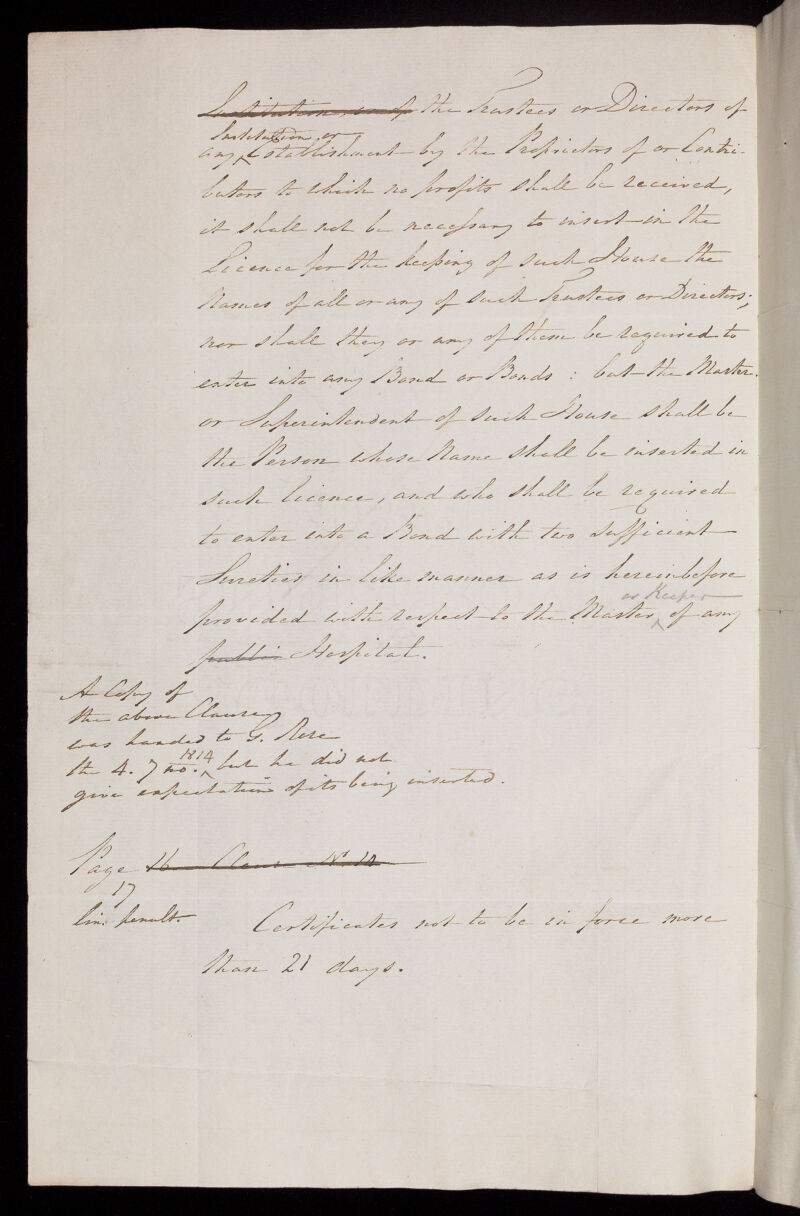 Institution, or of the Trustees or Directors of
Institution or
any Establishment by the Proprietors of or Contri-
butors to which no profits shall be received,
it shall not be necessary to insert in the
Licence for the keeping of such House the
Names of all or any of such Trustees or Directors;
nor shall they or any of them be required to
enter into any Bond or Bonds : but the Master
or Superintendent of such House shall be
the Person whose Name shall be inserted in
such licence, and who shall be required
to enter into a Bond with two sufficient
Sureties in like manner as is hereinbefore
or Keeper
provided with respect to the Master of any
public Hospital.
A Copy of
the above Clause
was handed to G. Rose
1814
the 4. 7 mo. but he did not
give expectation of its being inserted.
Page 16 Clause No 10
17
lin. penult.
Certificates not to be in force more
than 21 days.